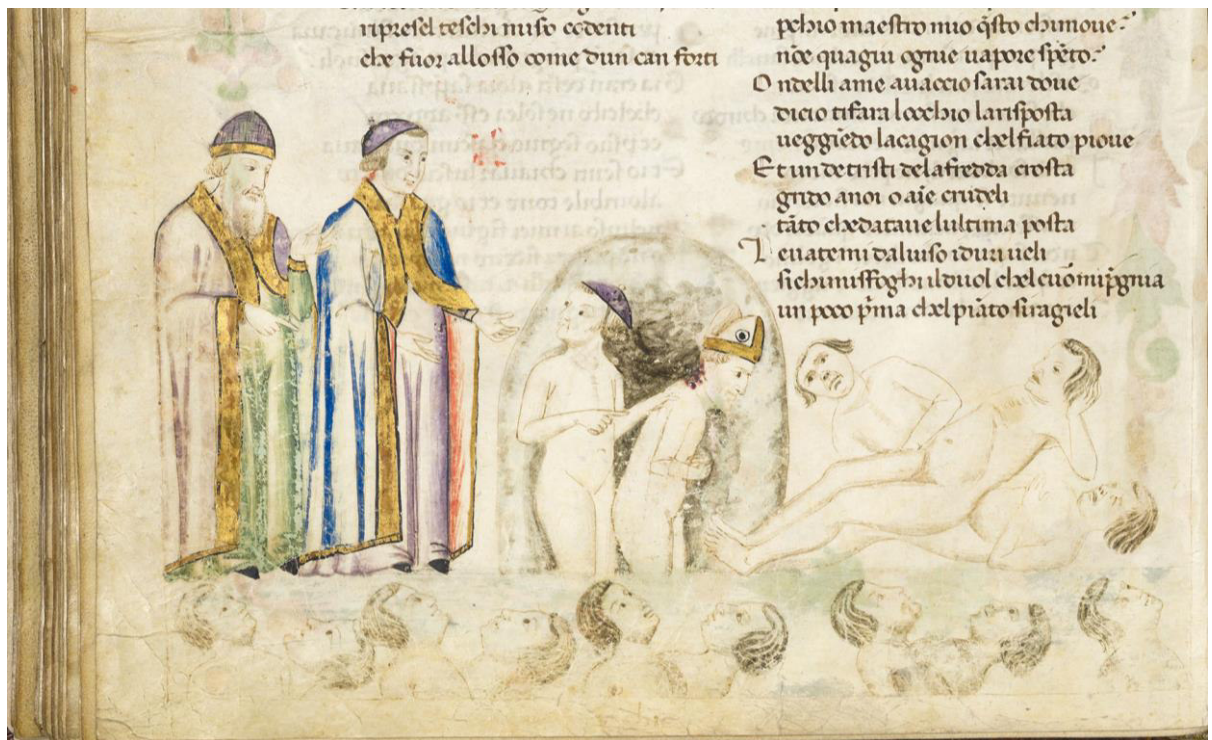 ripresel teschi miso co denti
che fuor allosso come dun can forti
pchio maestro mio q̄sto chi moue
nōe quagiu ogne uapore spēto
Ondelli ame auaccio sarai doue
dicio tifara locchio larisposta
ueggiēdo lacagion chel fiato pioue
Et un de tristi dela fredda crosta
grido anoi o aīe crudeli
tāto che data ue lultima posta
Leuatemi daluiso iduri ueli
si chi mi sfoghi il duol chel cuor mip̄gnia
un poco pͥma chel piāto siragieli